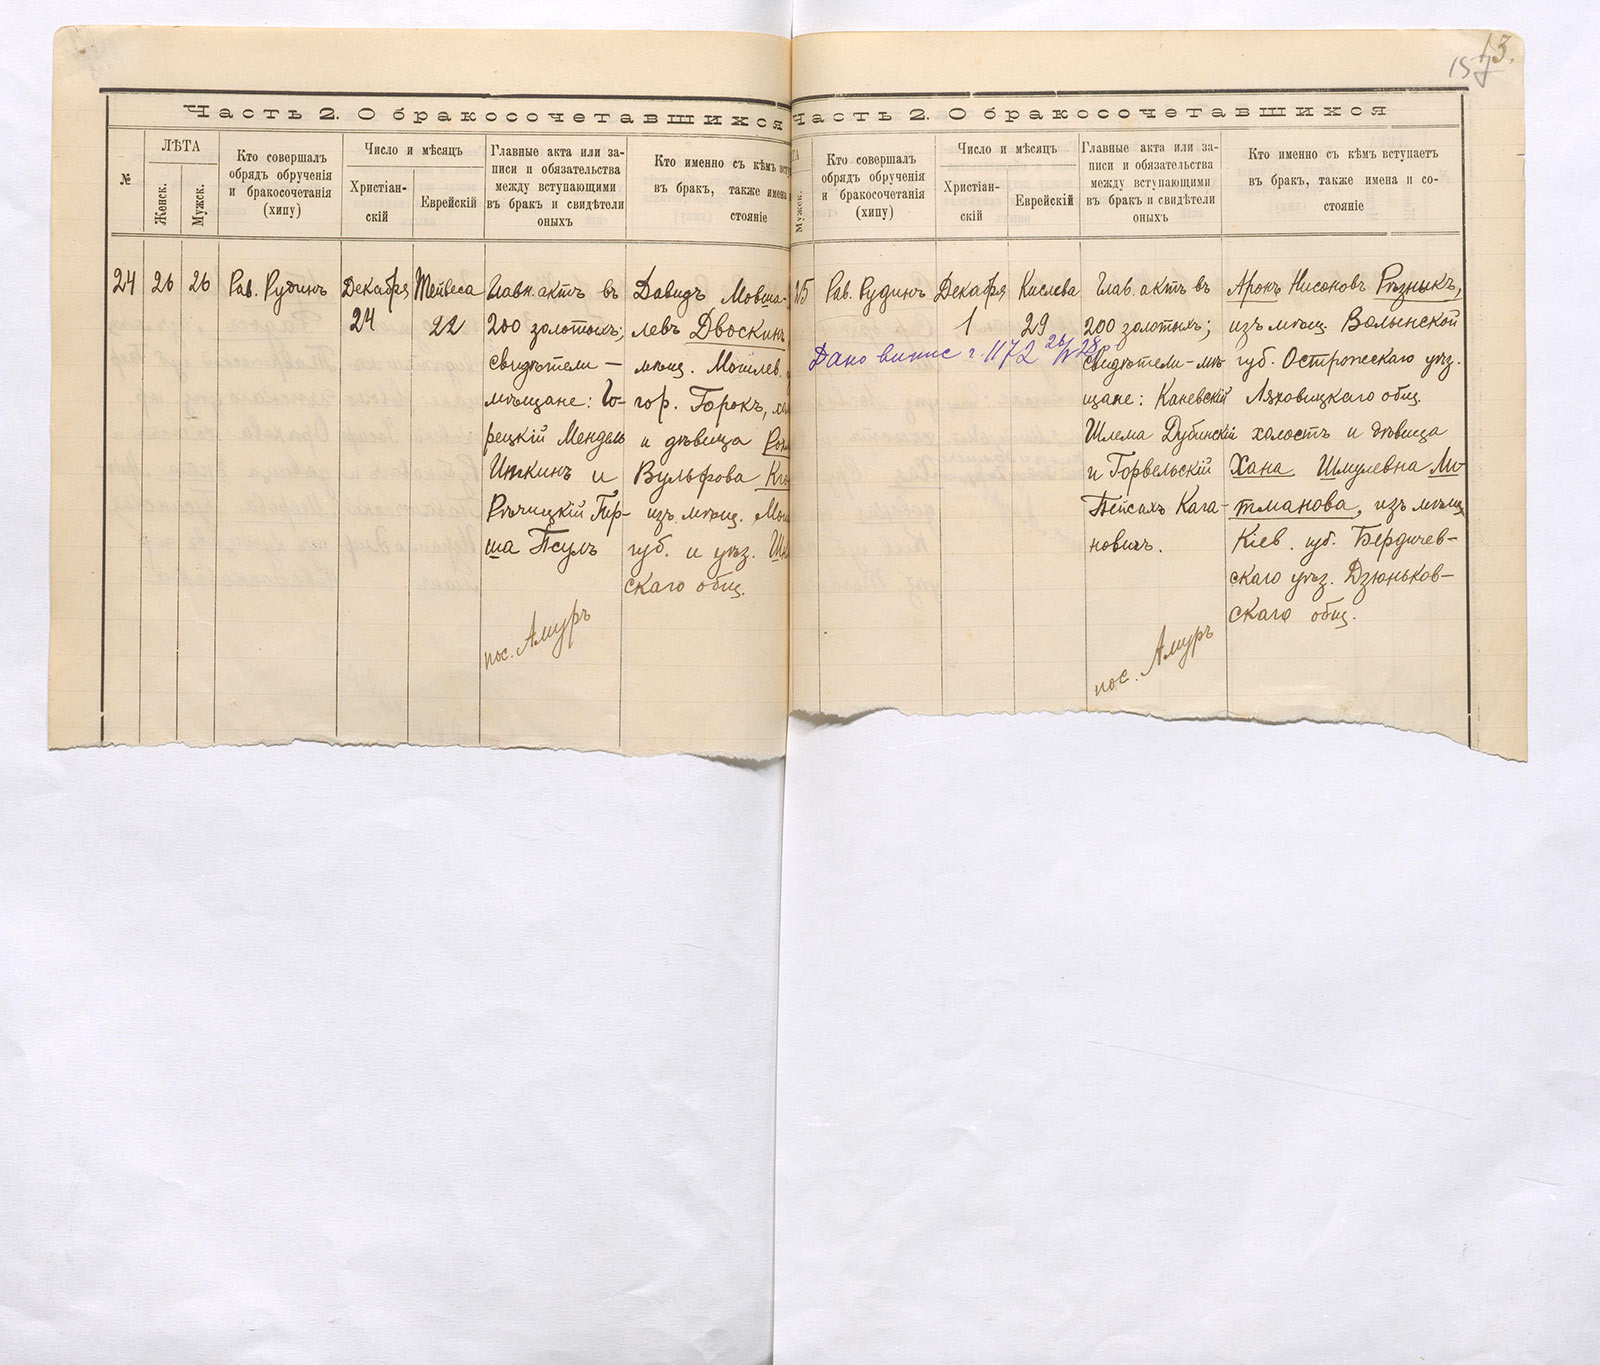 13.
15
Часть 2. О бракосочетавшихся
№
ЛѢТА
Женск.
Мужск.
Кто совершалъ
обрядъ обрученія
и бракосочетанія
(хипу)
Число и мѣсяцъ
Христіан-
скій
Еврейскій
Главные акта или за-
писи и обязательства
между вступающими
въ бракъ и свидѣтели
оныхъ
Кто именно съ кѣмъ всту
въ бракъ, также имена
стояніе
24
26
26
Рав. Рудинъ
Декабря
24
Тейвеса
22
Главн. актъ въ
200 золотыхъ;
свидѣтели —
мѣщане: Го-
рецкій Мендель
Иткинъ и
Рѣчицкій Гир-
ша Псулъ
пос. Амуръ
Давидъ Мовша-
левъ Двоскинъ
мѣщ. Могилев.
гор. Горокъ,
и дѣвица
Вульфова
изъ мѣщ.
губ. и уѣз.
скаго общ.
Часть 2. О бракосочетавшихся
Мужск.
Кто совершалъ
обрядъ обрученія
и бракосочетанія
(хипу)
Число и мѣсяцъ
Христіан-
скій
Еврейскій
Главные акта или за-
писи и обязательства
между вступающими
въ бракъ и свидѣтели
оныхъ
Кто именно съ кѣмъ вступаетъ
въ бракъ, также имена и со-
стояніе
Рав. Рудинъ
Декабря
1
Кислева
29
Дано випис 1172
Глав. актъ въ
200 золотыхъ;
свидѣтели – мѣ-
щане: Каневскій
Шлема Дубинскій
и Горвельскій
Пейсахъ Кага-
новичъ.
пос. Амуръ
Аронъ Нисоновъ Рѣзныкъ,
изъ мѣщ. Волынской
губ. Острожскаго уѣз.
Ляховицкаго общ.
холостъ и дѣвица
Хана Шмулевна
тманова, изъ мѣщ.
Кіев. губ. Бердичев-
скаго уѣз. Дзюньков-
скаго общ.